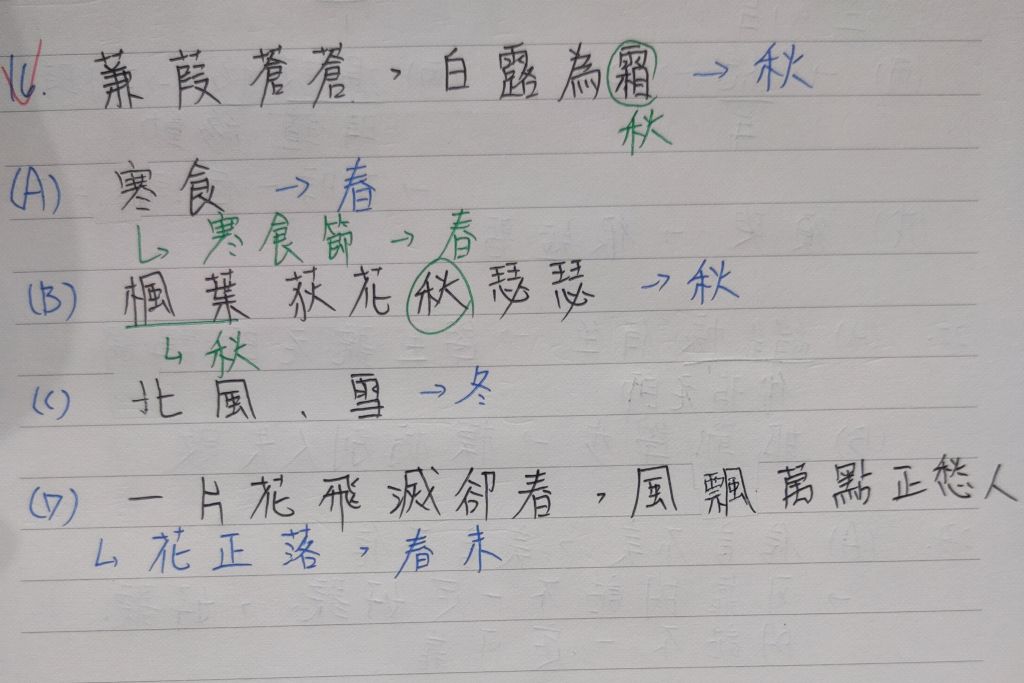 16. 蒹葭蒼蒼，白露為霜 → 秋
秋
(A) 寒食 → 春
↳ 寒食節 → 春
(B) 楓葉荻花秋瑟瑟 → 秋
↳ 秋
(C) 北風、雪 → 冬
(D) 一片花飛減卻春，風飄萬點正愁人
↳ 花正落，春末